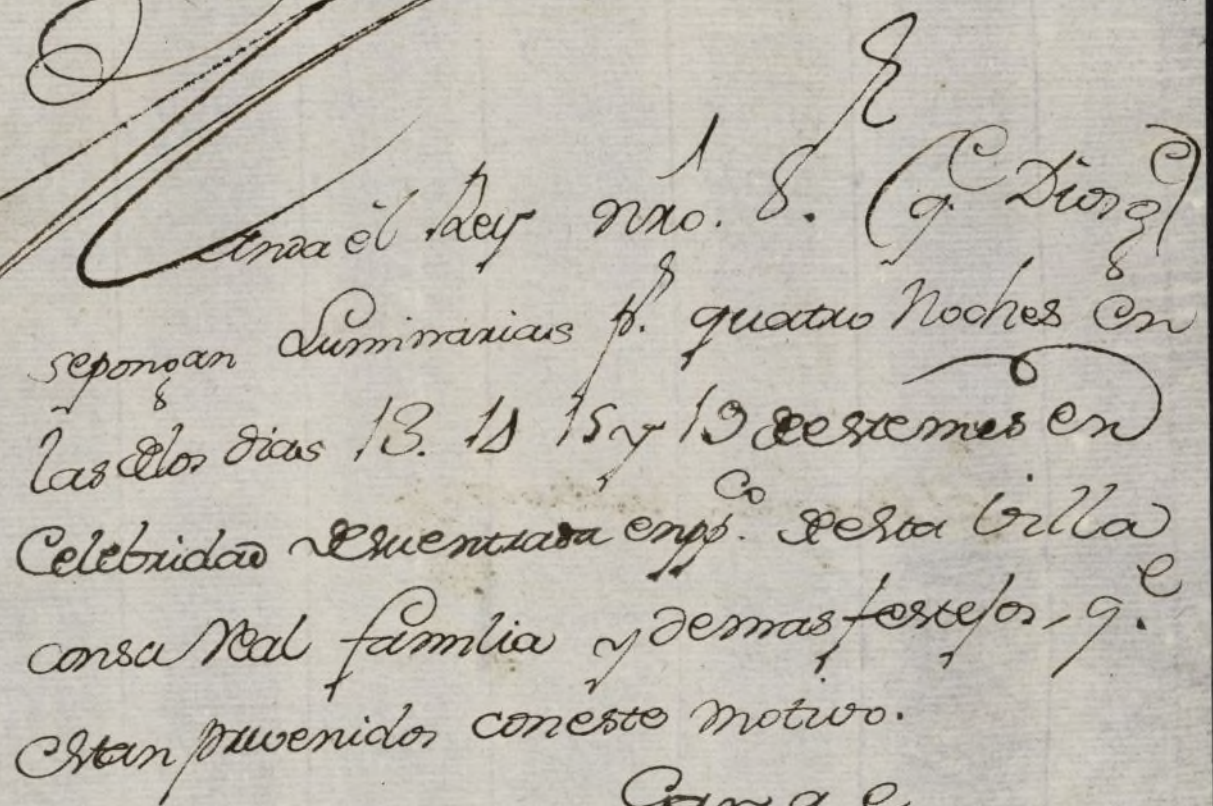 Manda el Rey nro. S. (q.e Dios g.e)
se pongan Luminarias p.r quatro Noches en
las de los dias 13. 14 15 y 19 de este mes en
Celebridad de su entrada en pp.co de esta Villa
con su Real familia y demas festejos, q.e
estan prevenidos con este motivo.